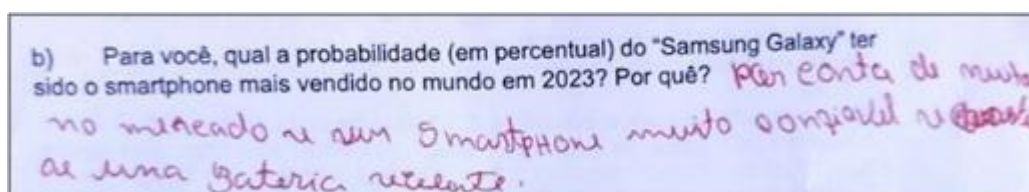 b) Para você, qual a probabilidade (em percentual) do "Samsung Galaxy" ter
sido o smartphone mais vendido no mundo em 2023? Por quê? por conta de muito
no mercado e um SmartpHone muito confiavel e
uma bateria